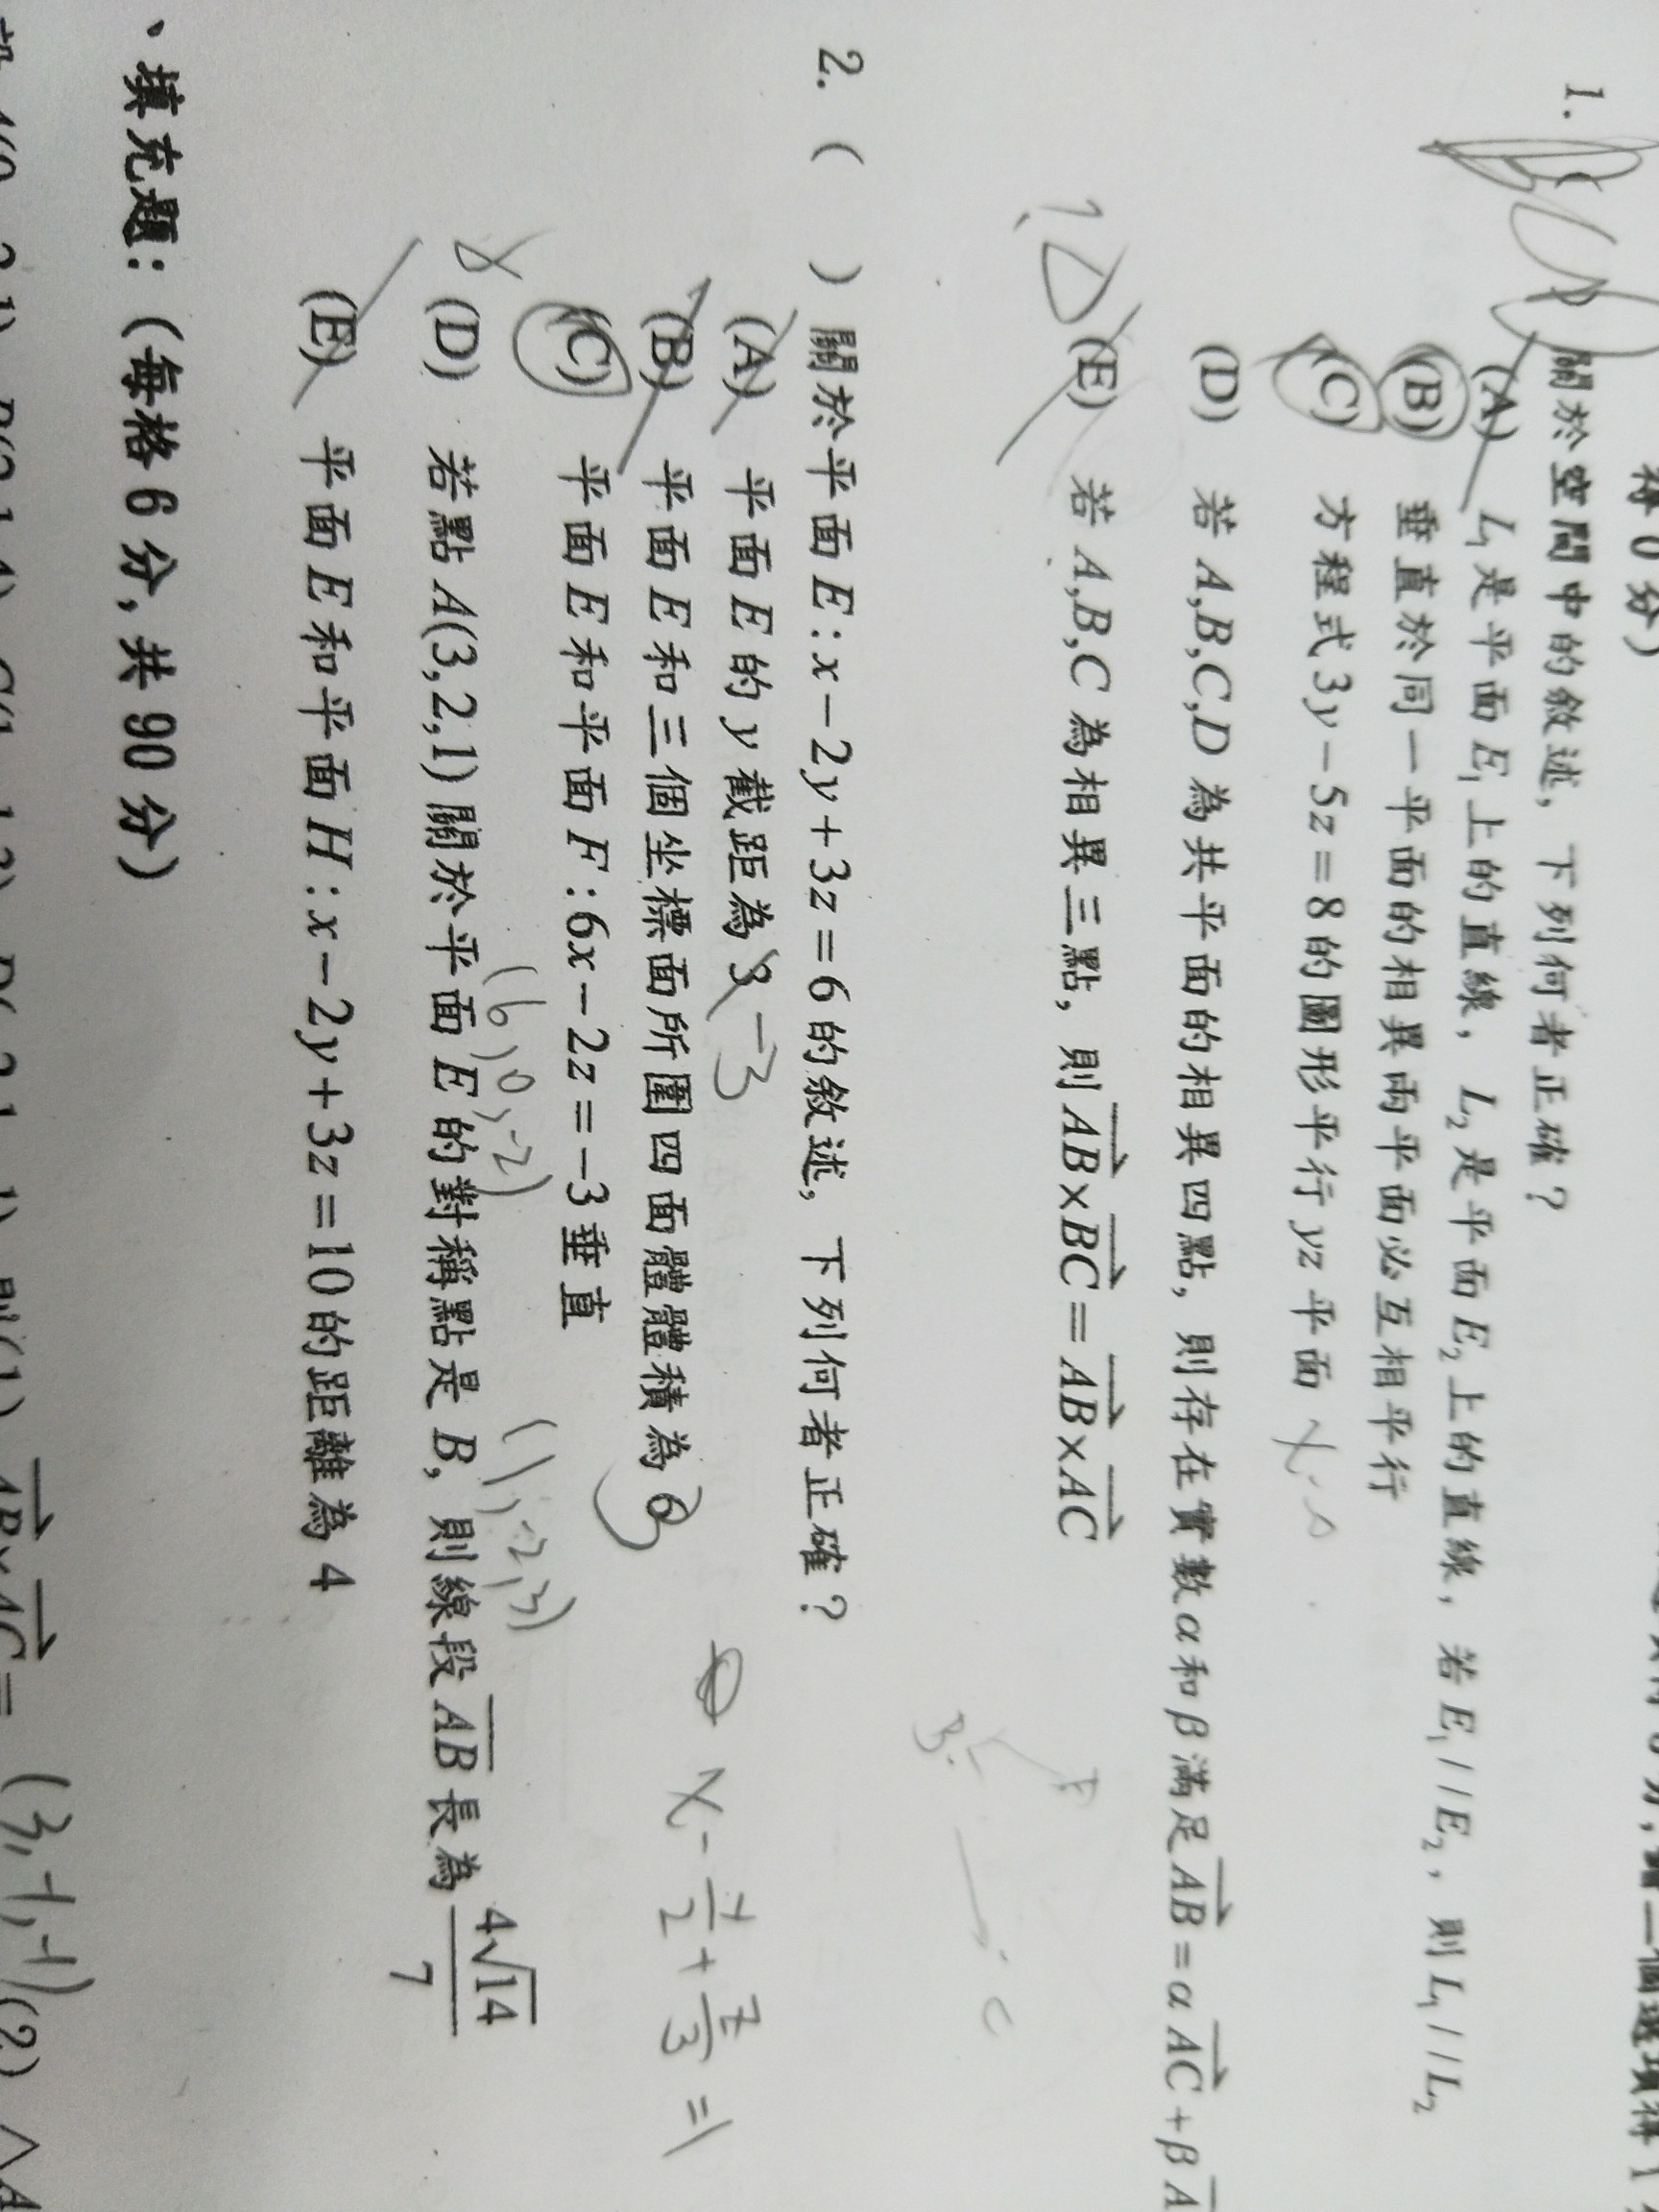 得 0 分)
1. ( ) 關於空間中的敘述, 下列何者正確?
(A) L₁是平面E₁上的直線, L₂是平面E₂上的直線, 若E₁//E₂, 則L₁//L₂
(B) 垂直於同一平面的相異兩平面必互相平行
(C) 方程式3y-5z=8的圖形平行yz平面
(D) 若A,B,C,D為共平面的相異四點, 則存在實數α和β滿足AB=αAC+βA
(E) 若A,B,C為相異三點, 則AB×BC=AB×AC
B
C
2. ( ) 關於平面E:x-2y+3z=6的敘述, 下列何者正確?
(A) 平面E的y截距為3 -3
(B) 平面E和三個坐標面所圍四面體體積為6
x-y/2+z/3=1
(C) 平面E和平面F:6x-2z=-3垂直
(6,0,-2) (1,-2,3)
(D) 若點A(3,2,1)關於平面E的對稱點是B, 則線段AB長為4√14/7
(E) 平面E和平面H:x-2y+3z=10的距離為4
、填充題:(每格6分, 共90分)
AB×AC= (3,-1,-1) (2) △A